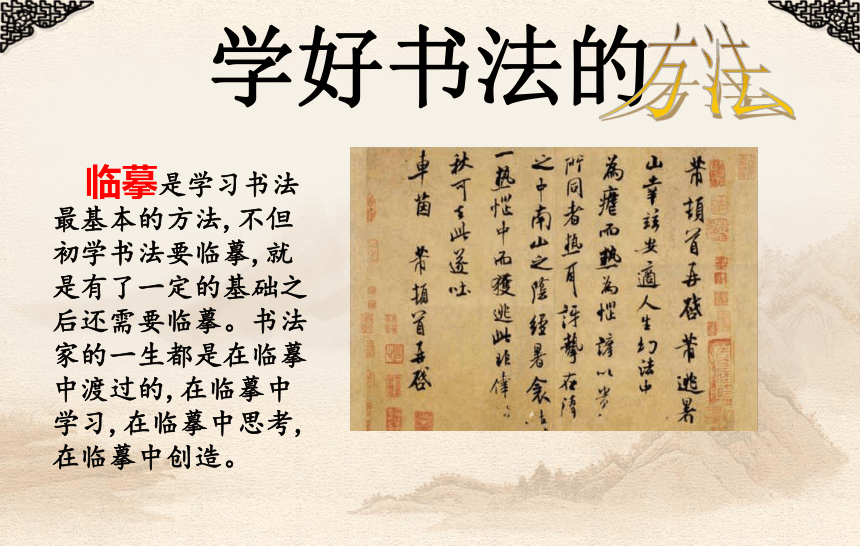 学好书法的方法
临摹是学习书法
最基本的方法,不但
初学书法要临摹,就
是有了一定的基础之
后还需要临摹。书法
家的一生都是在临摹
中渡过的,在临摹中
学习,在临摹中思考,
在临摹中创造。
芾頓首再啓芾逃暑
山幸安適人生幻法中
為而熱為惱諺以貴
所同者熱耳訝在
之中南山之陰經暑衾
一熱惱中而獲逃此非偉
秋可去此遂吐
車茵 芾頓首再啓